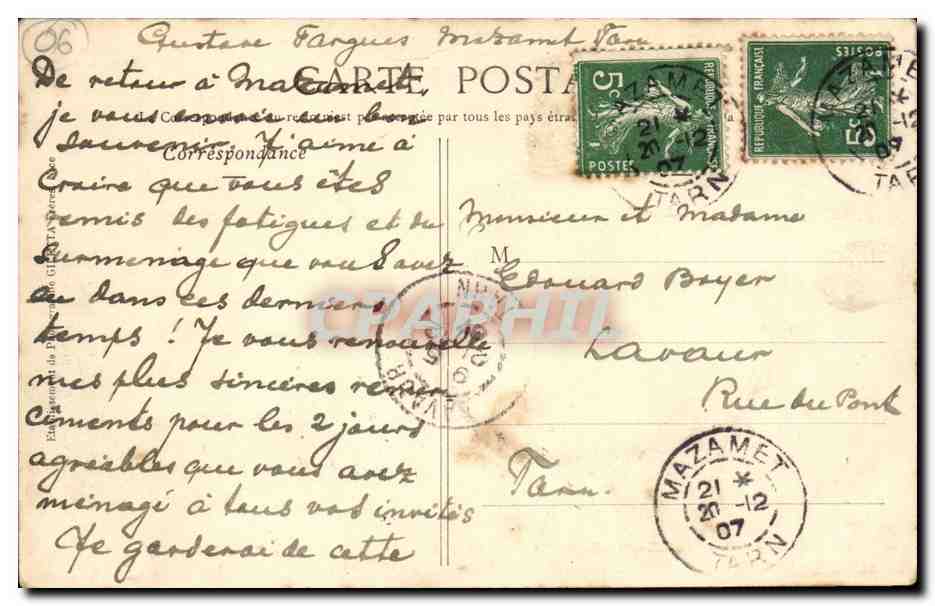 06
Gustave Fargues Mazamet Tarn
CARTE POSTA
De retour à Mazamet,
je vous envoie un bon
Correspondance
souvenir. J'aime à
croire que vous êtes
remis des fatigues et du
surmenage que vous avez
eu dans ces derniers
temps ! Je vous renouvelle
mes plus sincères remer
ciments pour les 2 jours
agréables que vous avez
ménagé à tous vos invités
Je garderai de cette
M
Monsieur et Madame
Edouard Boyer
Lavaur
Rue du Pont
Tarn.
5c POSTES REPUBLIQUE FRANÇAISE
MAZAMET
21 *
20 -12
07
TARN
REPUBLIQUE FRANÇAISE POSTES 5c
MAZAMET
21 *
20 -12
TARN
LAVAUR
MAZAMET
21 *
20 -12
07
TARN
CPAPHIL